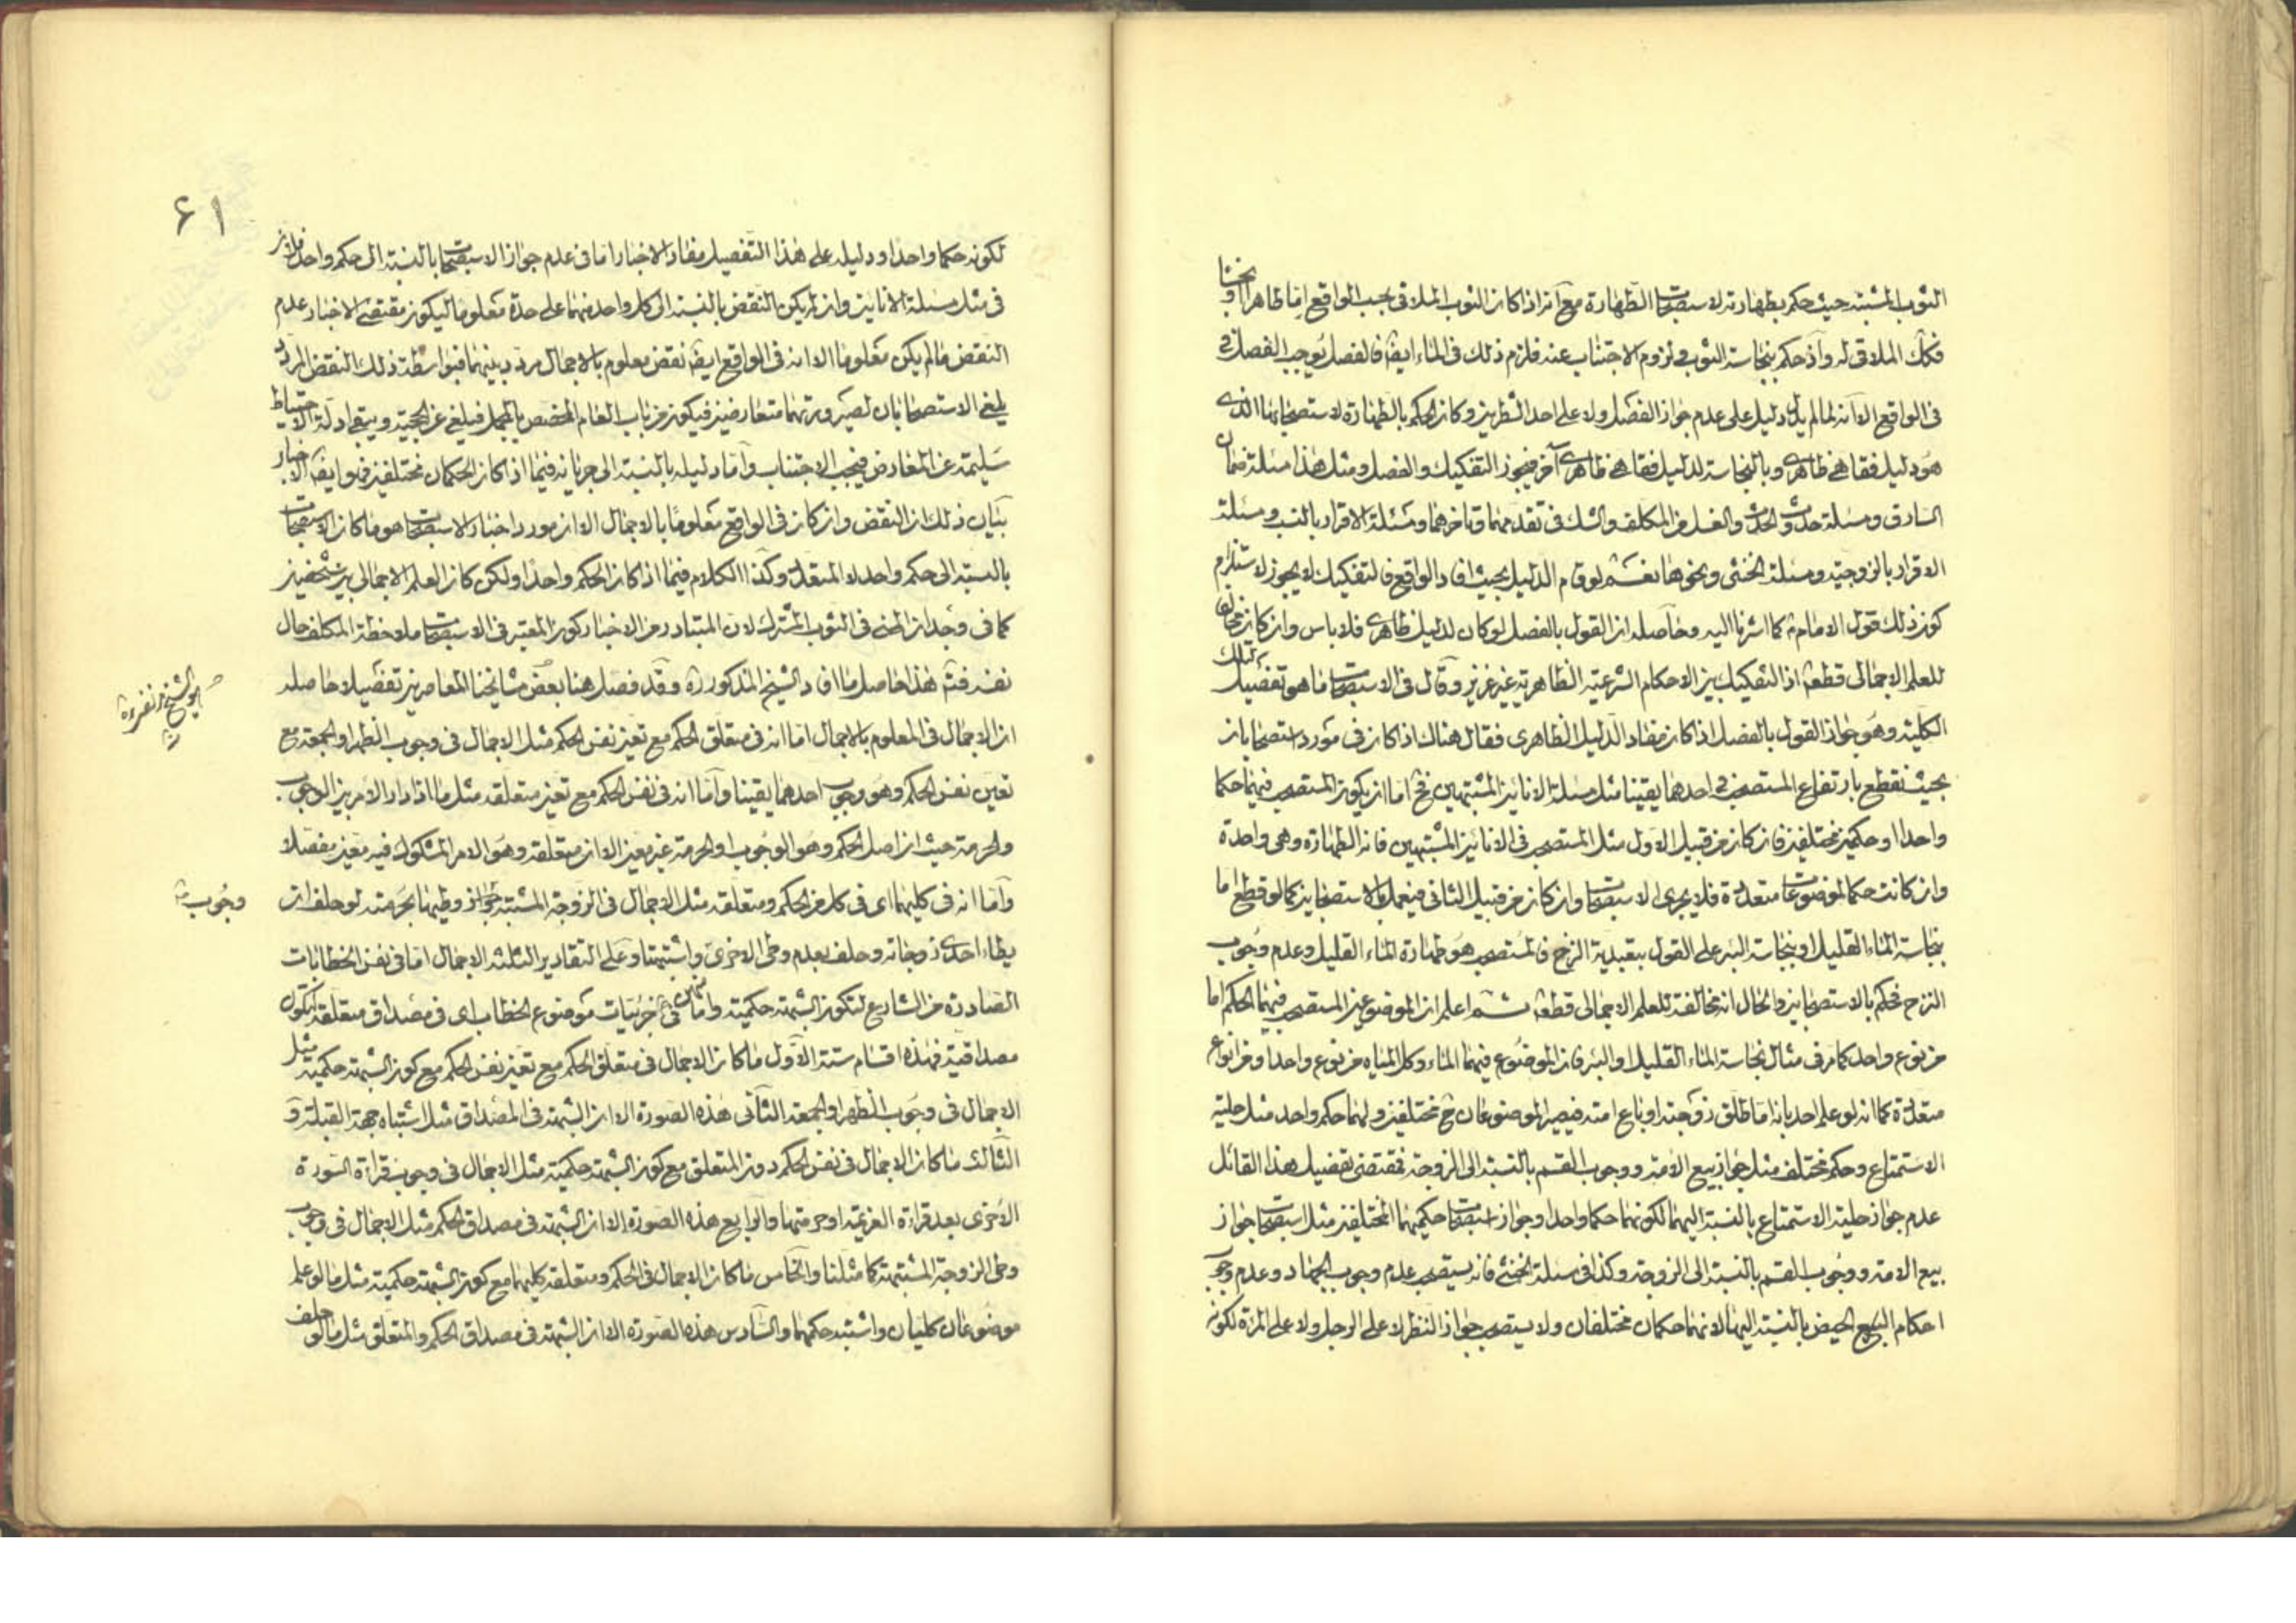 الثوب المشتبه حيث حكم بطهارته لاستصحاب الطهارة مع انه اذا كان الثوب الملاقى بحسب الواقع اما طاهرا او نجسا
فكك الملاقى له واذ حكم بنجاسة الثوب فى لزوم الاجتناب عنه فلزم ذلك فى الماء ايضا فالفصل يوجب الفصل فى
فى الواقع الا انه لما لم يدل دليل على عدم جواز الفصل ولا على احد الشطرين وكان الحكم بالطهارة لاستصحابها الذى
هو دليل فقاهى ظاهرى وبالنجاسة لدليل فقاهى ظاهرى آخر فيجوز التفكيك والفصل ومثل هذا مسئلة ضمان
السارق ومسئلة حدوث الحدث والغسل من المكلف والشك فى تقدمهما وتاخرهما ومسئلة الاقرار بالنسب ومسئلة
الاقرار بالزوجية ومسئلة الخنثى ونحوها نعم لو قام الدليل بحيث افاد الواقع فالتفكيك لا يجوز لاستلزام
كون ذلك قول الامام ع كما اشرنا اليه وحاصله ان القول بالفصل لو كان لدليل ظاهرى فلا باس وان كان مخالفا
للعلم الاجمالى قطعا اذ التفكيك بين الاحكام الشرعية الظاهرية غير عزيز وقال فى الاستصحاب ما هو تفصيل لتلك
الكلية وهو جواز القول بالفصل اذ كان مفاد الدليل الظاهرى فقال هناك اذا كان فى مورد استصحابان
بحيث نقطع بارتفاع المستصحب فى احدهما يقينا مثل مسئلة الانائين المشتبهين فح اما ان يكون المستصحب فيهما حكما
واحدا او حكمين مختلفين فان كان من قبيل الاول مثل المستصحب فى الانائين المشتبهين فانه الطهارة وهى واحدة
وان كانت حكما لموضوعات متعددة فلا يجرى الاستصحاب وان كان من قبيل الثانى فيعمل بالاستصحابين كما لو قطع اما
بنجاسة الماء القليل او بنجاسة البئر على القول بتعبدية النزح فالمستصحب هو طهارة الماء القليل وعدم وجوب
النزح فحكم بالاستصحابين والحال انه مخالفة للعلم الاجمالى قطعا ثم اعلم ان الموضوعين المستصحب فيهما الحكم اما
من نوع واحد كما مر فى مثال نجاسة الماء القليل والبئر فان الموضوع فيهما الماء وكل المياه من نوع واحد او من انواع
متعددة كما انه لو علم احد بانه اما طلق زوجته او باع امته فيصير الموضوعان ح مختلفين ولهما حكم واحد مثل حلية
الاستمتاع وحكم مختلف مثل جواز بيع الامة ووجوب القسم بالنسبة الى الزوجة فمقتضى تفصيل هذا القائل
عدم جواز حلية الاستمتاع بالنسبة اليهما لكونهما حكما واحدا وجواز استصحاب حكميهما المختلفين مثل استصحاب جواز
بيع الامة ووجوب القسم بالنسبة الى الزوجة وكذا فى مسئلة الخنثى فانه يستصحب عدم وجوب الجهاد وعدم وجوب
احكام الحيض بالنسبة اليها لانهما حكمان مختلفان ولا يستصحب جواز النظر لا على الرجل ولا على المرئة لكونه
۶۱
لكونه حكما واحدا ودليله على هذا التفصيل مفاد الاخبار اما فى عدم جواز الاستصحاب بالنسبة الى حكم واحد فلان
فى مثل مسئلة الانائين وان لم يكن النقض بالنسبة الى كل واحد منهما على حدة معلوما ليكون مقتضى الاخبار عدم
النقض ما لم يكن معلوما الا انه فى الواقع ايضا نقض معلوم بالاجمال مردد بينهما فبواسطة ذلك النقض المردد
يلغى الاستصحابان لصيرورتهما متعارضين فيكون من باب العام المخصص بالمجمل فيلغى عن الحجية ويبقى ادلة الاحتياط
سليمة عن المعارض فيجب الاجتناب واما دليله بالنسبة الى جريانه فيما اذا كان الحكمان مختلفين فهو ايضا الاخبار
بيان ذلك ان النقض وان كان فى الواقع معلوما بالاجمال الا ان مورد اخبار الاستصحاب هو ما كان الاستصحاب
بالنسبة الى حكم واحد لا المتعدد وكذا الكلام فيما اذا كان الحكم واحدا ولكن كان العلم الاجمالى بين شخصين
كما فى وجدان المنى فى الثوب المشترك لان المتبادر من الاخبار كون المعتبر فى الاستصحاب ملاحظة المكلف حال
نفسه فتم هذا حاصل ما افاد الشيخ المذكور ره وقد فصل هنا بعض مشايخنا المعاصرين تفصيلا حاصله
ان الاجمال فى المعلوم بالاجمال اما انه فى متعلق الحكم مع تعين نفس الحكم مثل الاجمال فى وجوب الظهر او الجمعة مع
تعين نفس الحكم وهو وجوب احدهما يقينا واما انه فى نفس الحكم مع تعين متعلقه مثل ما اذا دار الامر بين الوجوب
والحرمة حيث ان اصل الحكم وهو الوجوب او الحرمة غير معين الا ان متعلقه وهو الامر المشكوك فيه معين مفصلا
واما انه فى كليهما اى فى كل من الحكم ومتعلقه مثل الاجمال فى الزوجة المشتبه جواز وطيها بحرمته لو حلف ان
وجوب
يطاء احدى زوجاته وحلف بعدم وطى الاخرى واشتبهتا وعلى التقادير الثلثة الاجمال اما فى نفس الخطابات
الصادرة من الشارع لتكون الشبهة حكمية واما فى جزئيات موضوع الخطاب اى فى مصداق متعلقه لتكون
مصداقية فهذه اقسام ستة الاول ما كان الاجمال فى متعلق الحكم مع تعين نفس الحكم مع كون الشبهة حكمية مثل
الاجمال فى وجوب الظهر او الجمعة الثانى هذه الصورة الا ان الشبهة فى المصداق مثل اشتباه جهة القبلة و
الثالث ما كان الاجمال فى نفس الحكم دون المتعلق مع كون الشبهة حكمية مثل الاجمال فى وجوب قرائة السورة
الاخرى بعد قرائة العزيمة او حرمتها والرابع هذه الصورة الا ان الشبهة فى مصداق الحكم مثل الاجمال فى وجوب
وطى الزوجة المشتبهة كما مثلنا والخامس ما كان الاجمال فى الحكم ومتعلقه كليهما مع كون الشبهة حكمية مثل ما لو علم
موضوعان كليان واشتبه حكمهما والسادس هذه الصورة الا ان الشبهة فى مصداق الحكم والمتعلق مثل ما لو حلف